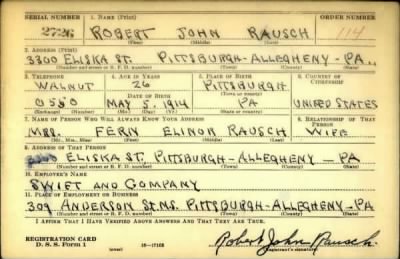 SERIAL NUMBER 1. Name (Print) ORDER NUMBER
2726 ROBERT JOHN RAUSCH 114
(First) (Middle) (Last)
2. ADDRESS (Print)
3300 ELISKA ST. PITTSBURGH-ALLEGHENY-PA.
(Number and street or R. F. D. number) (Town) (County) (State)
3. TELEPHONE 4. AGE IN YEARS 5. PLACE OF BIRTH 6. COUNTRY OF CITIZENSHIP
WALNUT 26 PITTSBURGH
DATE OF BIRTH
0550 MAY 5, 1914 PA UNITED STATES
(Exchange) (Number) (Mo.) (Day) (Yr.) (State or country)
7. NAME OF PERSON WHO WILL ALWAYS KNOW YOUR ADDRESS 8. RELATIONSHIP OF THAT PERSON
MRS. FERN ELINOR RAUSCH WIFE
(Mr., Mrs., Miss) (First) (Middle) (Last)
9. ADDRESS OF THAT PERSON
ELISKA ST. PITTSBURGH-ALLEGHENY-PA
(Number and street or R. F. D. number) (Town) (County) (State)
10. EMPLOYER'S NAME
SWIFT AND COMPANY
11. PLACE OF EMPLOYMENT OR BUSINESS
309 ANDERSON ST. N.S. PITTSBURGH-ALLEGHENY-PA
(Number and street or R. F. D. number) (Town) (County) (State)
I AFFIRM THAT I HAVE VERIFIED ABOVE ANSWERS AND THAT THEY ARE TRUE.
REGISTRATION CARD
D. S. S. Form 1 (over) 16-17105 Robert John Rausch
(Registrant's signature)